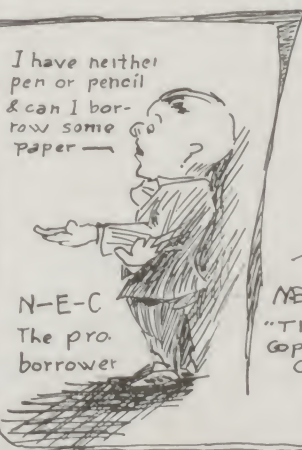 I have neither
pen or pencil
& can I bor-
row some
paper —
N-E-C
The pro.
borrower
"Th
Cop